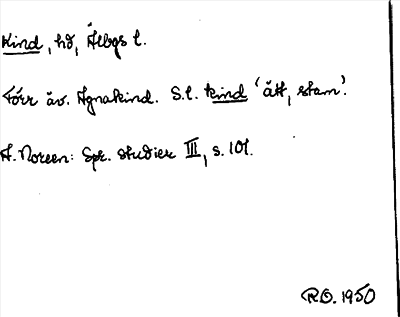 Kind, hd, Älvsbgs l.
Förr äv. Agnakind. S.l. kind 'ätt, stam'.
A. Noreen: Spr. studier III, s. 101.
R.O. 1950